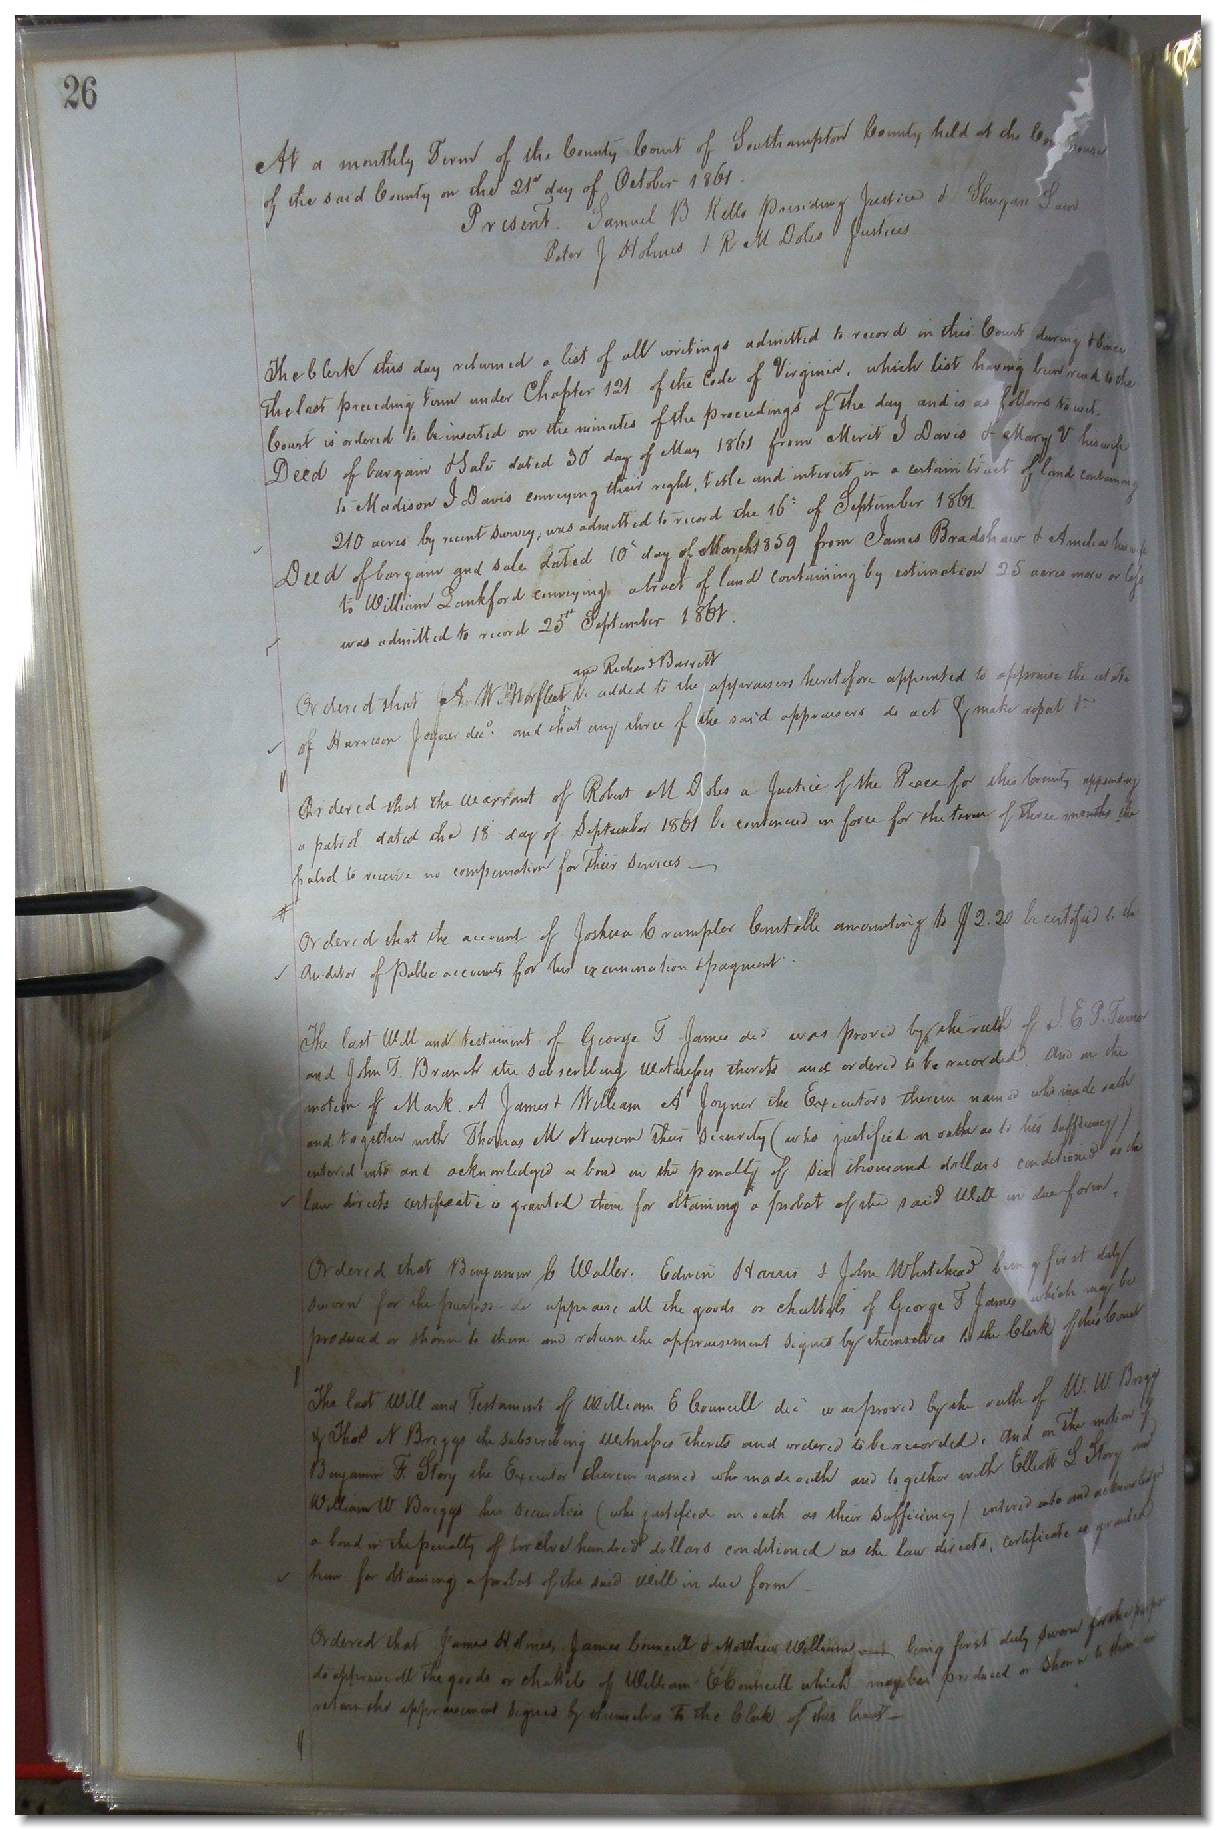 26
At a monthly Term of the County Court of Southampton County held at the
of the said County on the 21st day of October 1861.
Present. Samuel B Kello Presiding Justice &
Peter J Holmes & R M Doles Justices
The Clerk this day returned a list of all writings admitted to record in this Court during & since
the last preceding Term under Chapter 121 of the Code of Virginia, which list having been read to the
Court is ordered to be inserted on the minutes of the proceedings of the day and is as follows to wit.
Deed of bargain & Sale dated 30 day of May 1861 from Merit J Davis & Mary V his wife
to Madison J Davis conveying their right, title and interest in a certain tract of land containing
210 acres by recent survey, was admitted to record the 16th of September 1861
Deed of bargain and sale dated 10th day of March 1859 from James Bradshaw & his wife
to William Lankford conveying a tract of land containing by estimation 25 acres more or less
was admitted to record 25th September 1861.
and Richard Barrett
Ordered that W Norfleet be added to the appraisers heretofore appointed to appraise the estate
of Harrison Joyner decd. and that any three of the said appraisers do act & make report &c
Ordered that the warrant of Robert M Doles a Justice of the Peace for this County appointing
a patrol dated the 18 day of September 1861 be continued in force for the term of three months the
patrol to receive no compensation for their services
Ordered that the account of Joshua Crumpler Constable amounting to $2.20 be certified to the
Auditor of Public accounts for his examination & payment.
The last Will and testament of George T James decd was proved by the oath of J E P. Turner
and John T. Branch the subscribing witnesses thereto and ordered to be recorded. And on the
motion of Mark. A James & William A Joyner the Executors therein named who made oath
and together with Thomas M Newsom their security (who justified on oath as to his sufficiency)
entered into and acknowledged a bond in the penalty of six thousand dollars conditioned as the
law directs certificate is granted them for obtaining a probat of the said Will in due form.
Ordered that Benjamin C Waller. Edwin Harris & John Whitehead being first duly
sworn for the purpose do appraise all the goods or chattels of George T James which may be
produced or shown to them and return the appraisement signed by themselves to the Clerk of this Court
The last Will and Testament of William E Councill decd was proved by the oath of W. W Briggs
& Thos N Briggs the subscribing witnesses thereto and ordered to be recorded. And on the motion of
Benjamin F. Story the Executor therein named who made oath and together with Elliott L Story and
William W Briggs his securities (who justified on oath as their sufficiency) entered into and acknowledged
a bond in the penalty of twelve hundred dollars conditioned as the law directs, certificate is granted
him for obtaining a probat of the said Will in due form
Ordered that James Holmes, James Councill & Matthew Williams being first duly sworn for the purpose
do appraise all the goods or chattels of William E Councill which may be produced or shown to them and
return the appraisement signed by themselves to the Clerk of this Court